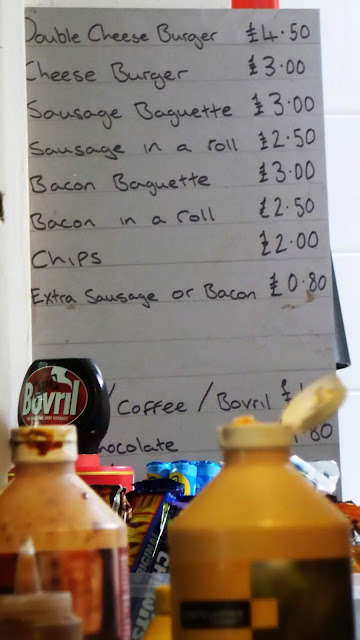 Double Cheese Burger £4.50
Cheese Burger £3.00
Sausage Baguette £3.00
Sausage in a roll £2.50
Bacon Baguette £3.00
Bacon in a roll £2.50
Chips £2.00
Extra Sausage or Bacon £0.80
/ Coffee / Bovril £
hocolate .80
Bovril